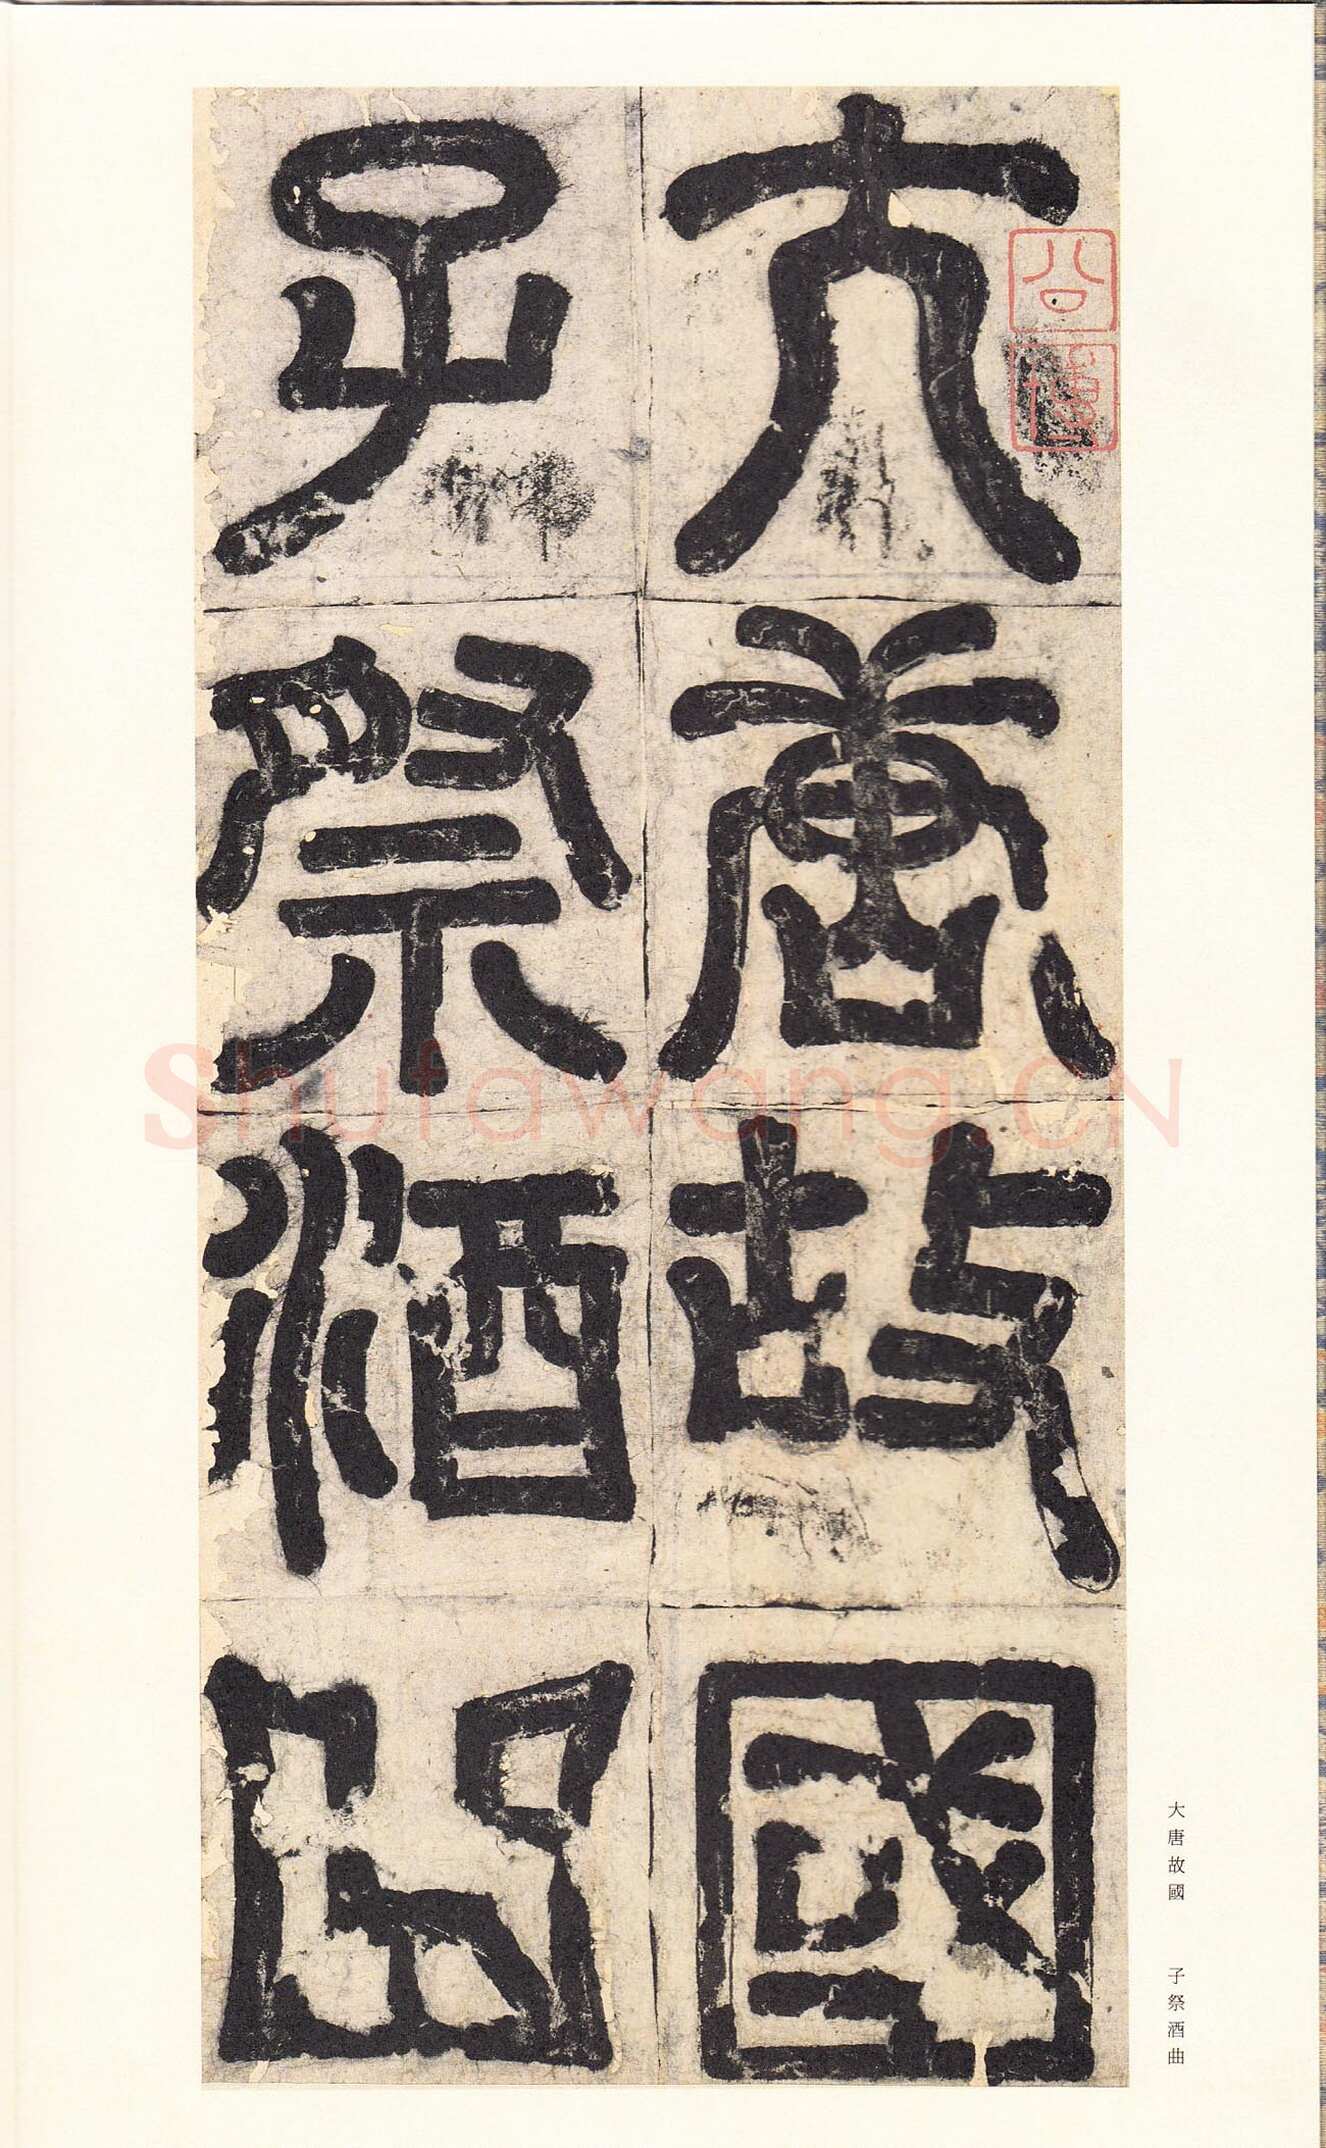 大唐故國
子祭酒曲
大唐故國 子祭酒曲
Shufawang.CN